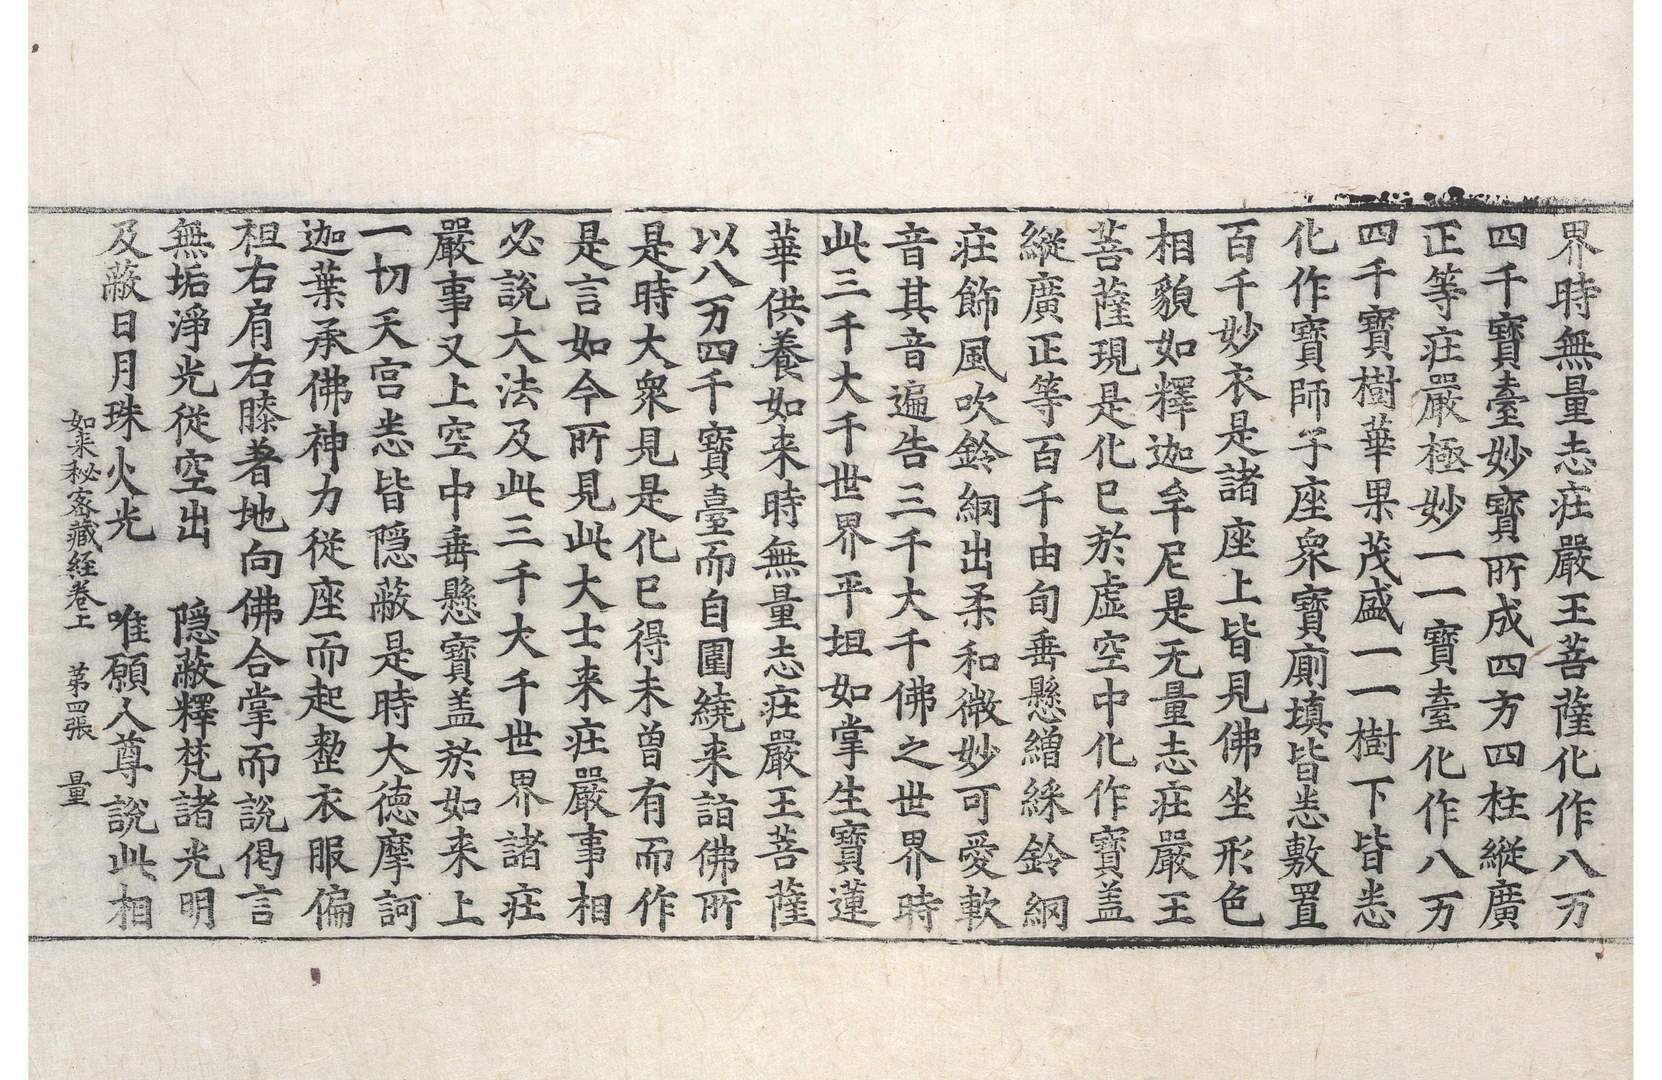 界時無量志莊嚴王菩薩化作八万
四千寶臺妙寶所成四方四柱縱廣
正等莊嚴極妙一一寶臺化作八万
四千寶樹華果茂盛一一樹下皆悉
化作寶師子座衆寶廁填皆悉敷置
百千妙衣是諸座上皆見佛坐形色
相貌如釋迦牟尼是无量志莊嚴王
菩薩現是化已於虛空中化作寶盖
縱廣正等百千由旬垂懸繒綵鈴網
莊飾風吹鈴網出柔和微妙可愛軟
音其音遍告三千大千佛之世界時
此三千大千世界平坦如掌生寶蓮
華供養如来時無量志莊嚴王菩薩
以八万四千寶臺而自圍繞来詣佛所
是時大衆見是化已得未曾有而作
是言如今所見此大士来莊嚴事相
必說大法及此三千大千世界諸莊
嚴事又上空中垂懸寶盖於如来上
一切天宫悉皆隐蔽是時大德摩訶
迦葉承佛神力從座而起整衣服偏
袒右肩右膝著地向佛合掌而說偈言
無垢淨光從空出　隐蔽釋梵諸光明
及蔽日月珠火光　唯願人尊說此相
如来秘密藏經卷上　第四張　量